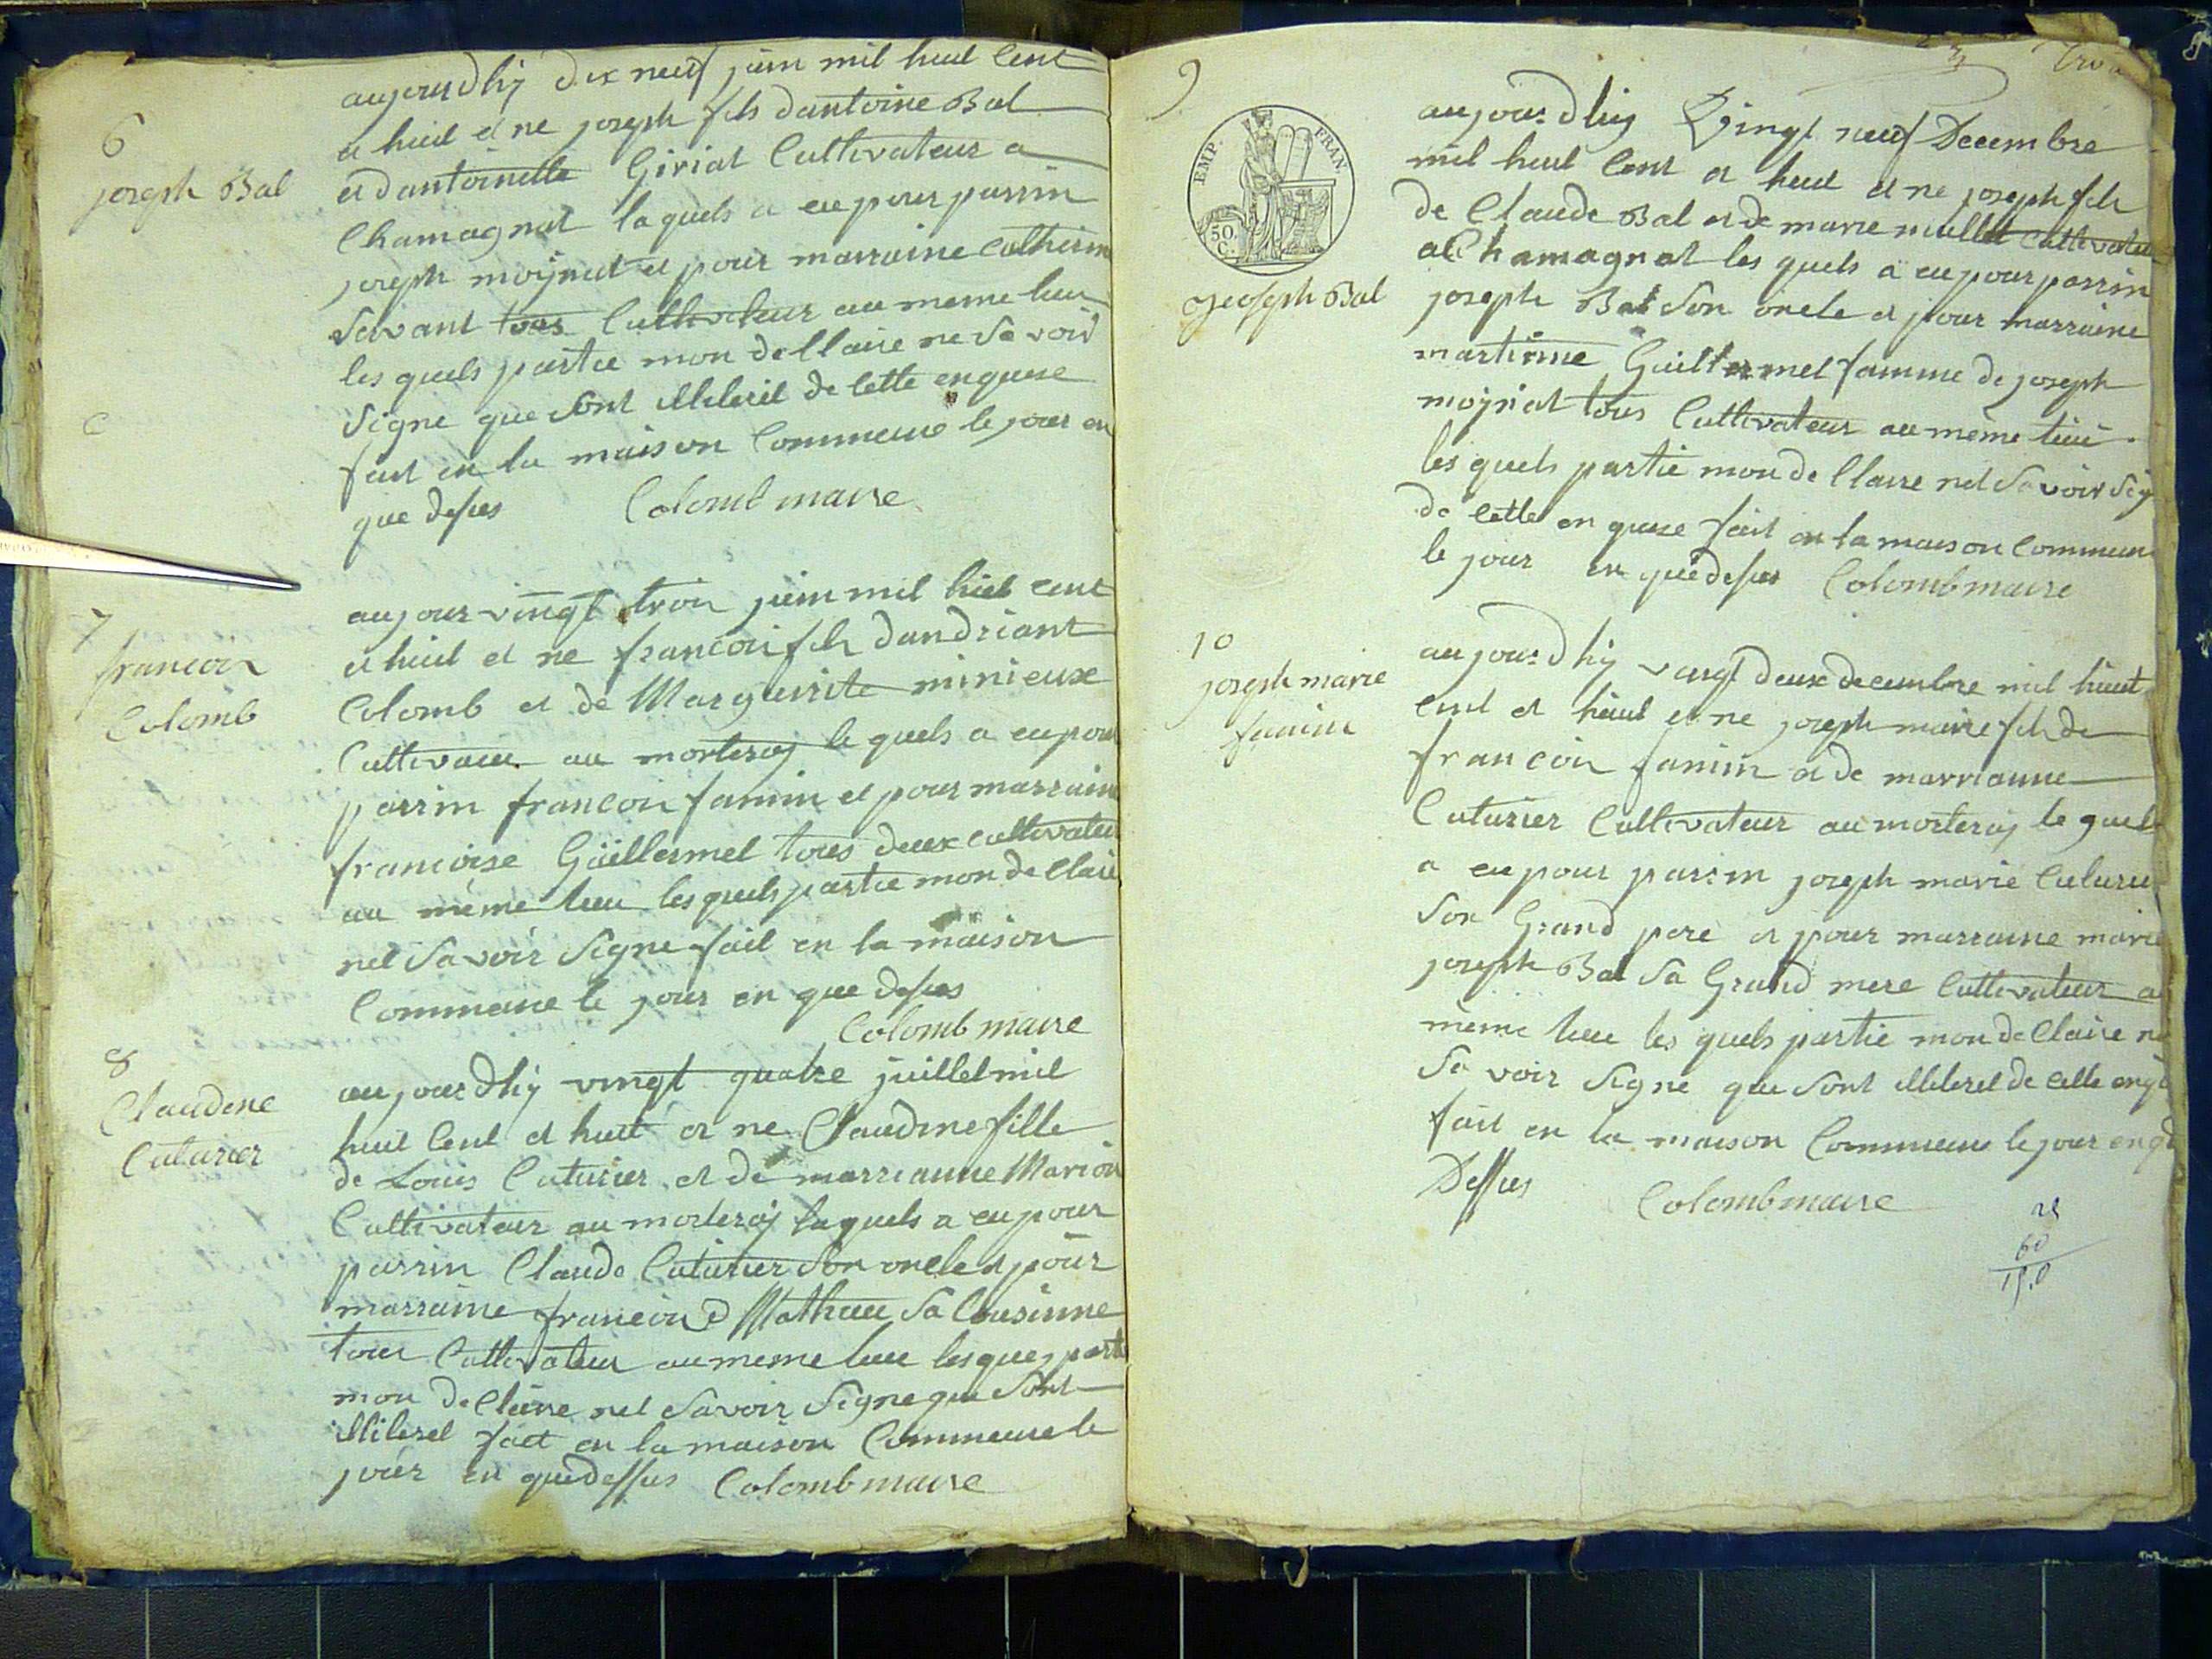 6
joseph Bal
aujourdhij dix neuf juin mil huit Cent
et huit et ne joseph fils dantoine Bal
et dantoinette Giriat Cultivateur a
Chamagnat laquels a eu pour parrin
joseph moijnat et pour marraine catherin
Savant tous Cultivateur au meme lieu
les quels partie mon de Claire ne Savoir
Signe que Sont Milesil de Cette enquise
fait en la maison Commeune le jour en
que desus Colomb maire
7
francois
Colomb
aujour vingt trois juin mil huit cent
et huit et ne francois fils dandriant
Colomb et de Margueritte minieux
Cultivateur au morteraij le quels a eu pour
parrin francois famin et pour marrain
francoise Guillermet tous deux cultivateur
au même lieu les quels partie mon de Claire
net Savoir Signe fait en la maison
Commeune le jour en que desus
Colomb maire
8
Claudine
Cuturier
aujourdhij vingt quatre juillet mil
huit Cent et huit et ne Claudine fille
de Louis Cuturier et de marrianne Marion
Cultivateur au morteraij laquels a eu pour
parrin Claude Cuturier Son oncle et pour
marraine francoise Mathieu Sa Cousinne
tous Cultivateur au meme lieu lesques part
mon de Claire net Savoir Signe que Sont
Milesel fait en la maison Commeune le
jour en que dessus Colomb maire
9
EMP. FRAN.
50.
C.
Jeoseph Bal
aujourdhij Vingt neuf Decembre
mil huit Cent et huit et ne joseph fils
de Claude Bal et de marie millet Cultivateu
a Chamagnat les quels a eu pour parrin
joseph Bal Son oncle et pour marraine
martinne Guillermet famme de joseph
moijnat tous Cultivateur au même lieu
les quels partie mon de Claire net Savoir Sig
de Cette en quise fait en la maison Commeun
le jour en que desus Colomb maire
10
joseph marie
famin
aujourdhij vingt deux decembre mil huit
Cent et huit et ne joseph marie fils de
francois famin et de marrianne
Cuturier Cultivateur au morteraij le quels
a eu pour parrin joseph marie Cuturie
Son Grand pere et pour marraine marie
joseph Bal Sa Grand mere Cultivateur a
même lieu les quels partie mon de Claire ne
Savoir Signe que Sont Milesel de Cette enq
fait en la maison Commeune le jour en q
Dessus Colomb maire
25
60
15.0